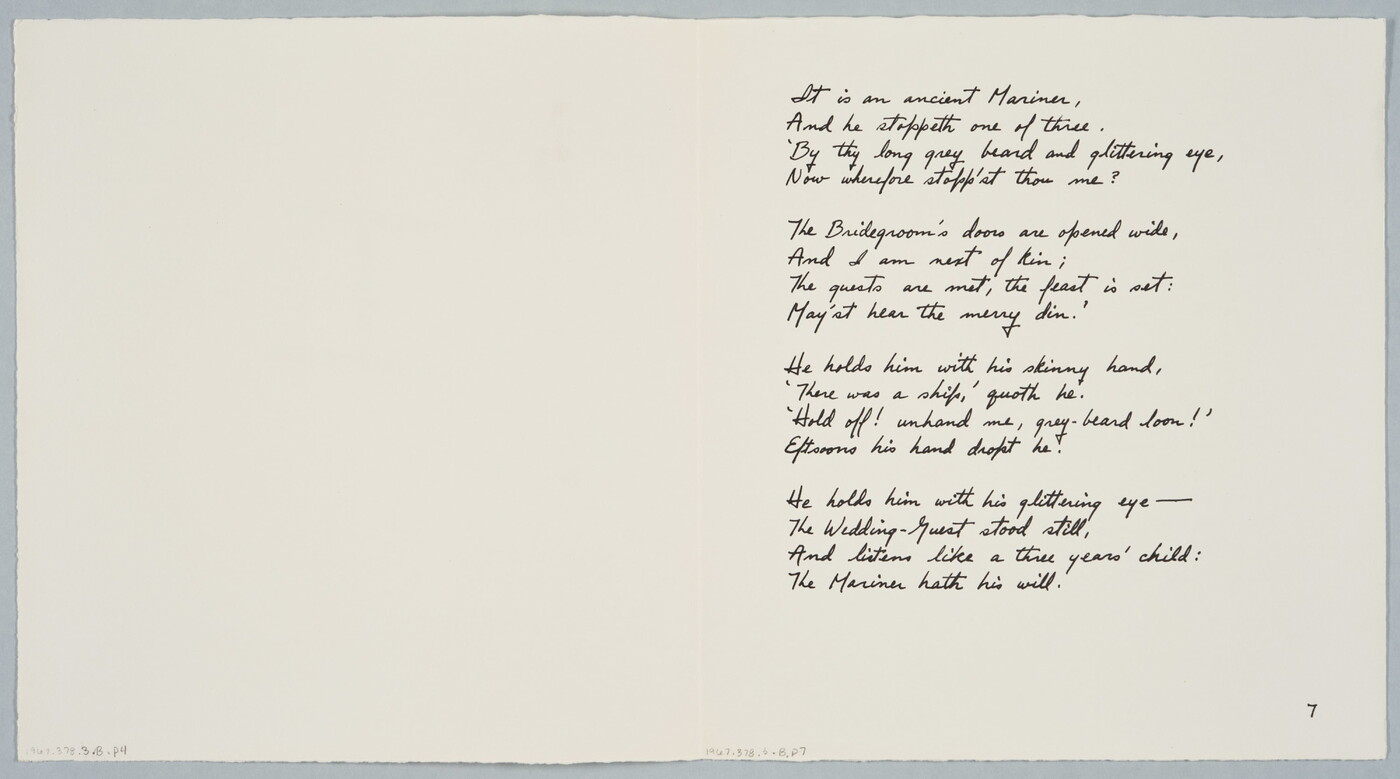 It is an ancient Mariner,
And he stoppeth one of three.
'By thy long grey beard and glittering eye,
Now wherefore stopp'st thou me?
The Bridegroom's doors are opened wide,
And I am next of kin;
The guests are met, the feast is set:
May'st hear the merry din.'
He holds him with his skinny hand,
'There was a ship,' quoth he.
'Hold off! unhand me, grey-beard loon!'
Eftsoons his hand dropt he.
He holds him with his glittering eye—
The Wedding-Guest stood still,
And listens like a three years' child:
The Mariner hath his will.
7
1967.378.3.B.p4
1967.378.3.B.p7